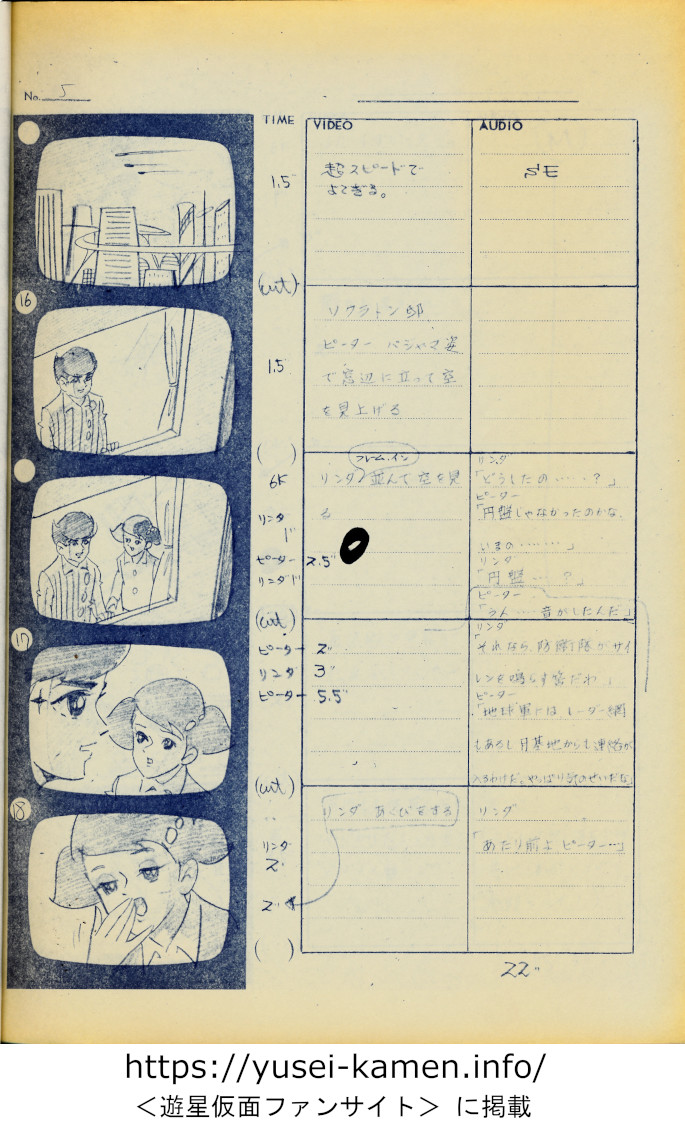 No. 5
TIME
VIDEO
AUDIO
1.5"
超スピードで
よこぎる。
SE
(cut)
16
1.5"
ソクラトン邸
ピーター パジャマ姿
で窓辺に立って空
を見上げる
( )
6K
リンダ
1"
ピーター 2.5"
リンダ 1"
フレーム・イン
リンダ 並んで空を見
る
リンダ
「どうしたの……?」
ピーター
「円盤じゃなかったのかな、
いまの………」
リンダ
「円盤…?」
ピーター
「うん…音がしたんだ」
(cut)
17
ピーター 2"
リンダ 3"
ピーター 5.5"
リンダ
「それなら、防衛隊がサイ
レンを鳴らす筈だわ」
ピーター
「地球軍にはレーダー網
もあるし月基地からも連絡が
入るわけだ。やっぱり気のせいだな」
(cut)
18
リンダ
2"
2"
リンダ あくびをする
リンダ
「あたり前よ ピーター…」
( )
22"
https://yusei-kamen.info/
＜遊星仮面ファンサイト＞ に掲載